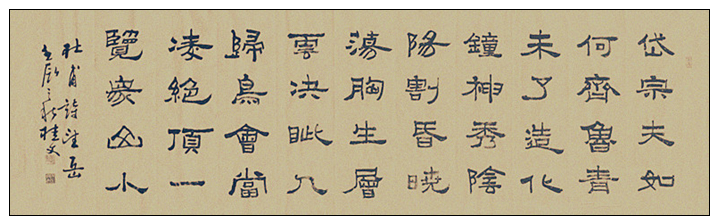 岱宗夫如
何齊魯青
未了造化
鐘神秀陰
陽割昏曉
蕩胸生層
雲決眦入
歸鳥會當
凌絕頂一
覽衆山小
杜甫詩望岳
之秋桂文